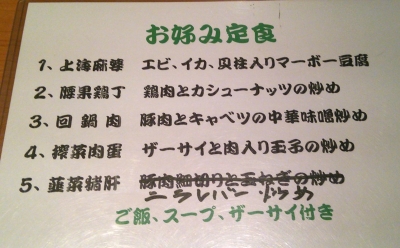 お好み定食
1、上海麻婆 エビ、イカ、貝柱入りマーボー豆腐
2、腰果鶏丁 鶏肉とカシューナッツの炒め
3、回鍋肉 豚肉とキャベツの中華味噌炒め
4、搾菜肉蛋 ザーサイと肉入り玉子の炒め
5、韮菜猪肝 豚肉細切りと玉ねぎの炒め
ニラレバー炒め
ご飯、スープ、ザーサイ付き